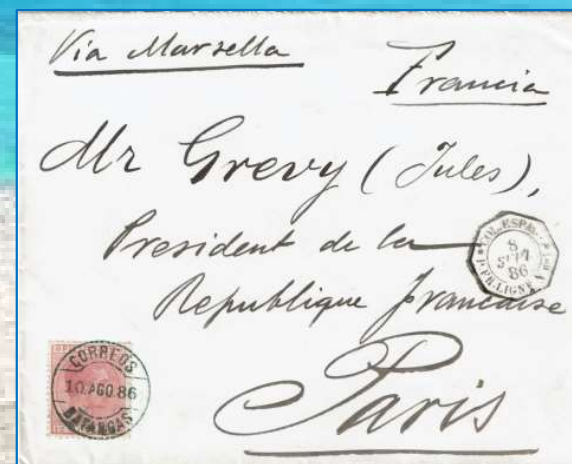 Via Marsella
Francia
Mr Grevy (Jules),
President de la
Republique francaise
Paris
8
86
LIGNE N
CORREOS
10 AGO 86
BATANGAS